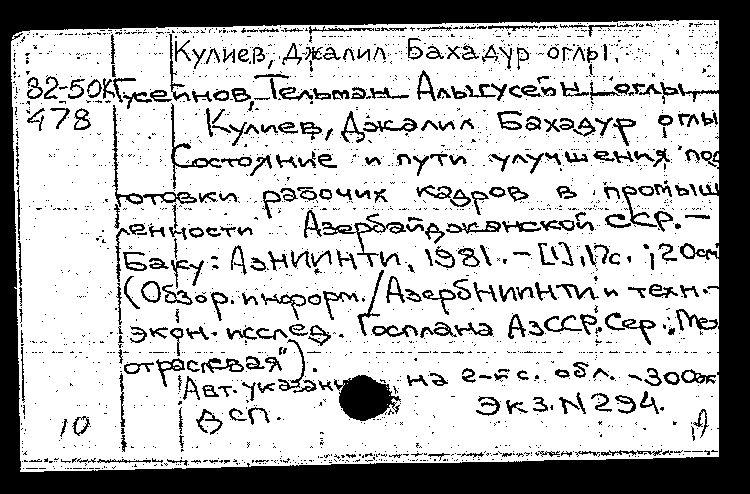 Кулиев, Джалил Бахадур оглы.
82-50К Гусейнов, Тельман Алыгусейн оглы,
478 Кулиев, Джалил Бахадур оглы
Состояние и пути улучшения под
готовки рабочих кадров в промыш
ленности Азербайджанской ССР. –
Баку: АзНИИНТИ, 1981. – [1], 17с. ; 20см
(Обзор. информ. / АзербНИИНТИ и техн.-
экон. исслед. Госплана АзССР. Сер.: „Меж
отраслевая").
Авт. указаны на 2-й с. обл. – 300эк
ДСП. Экз. N 294.
10